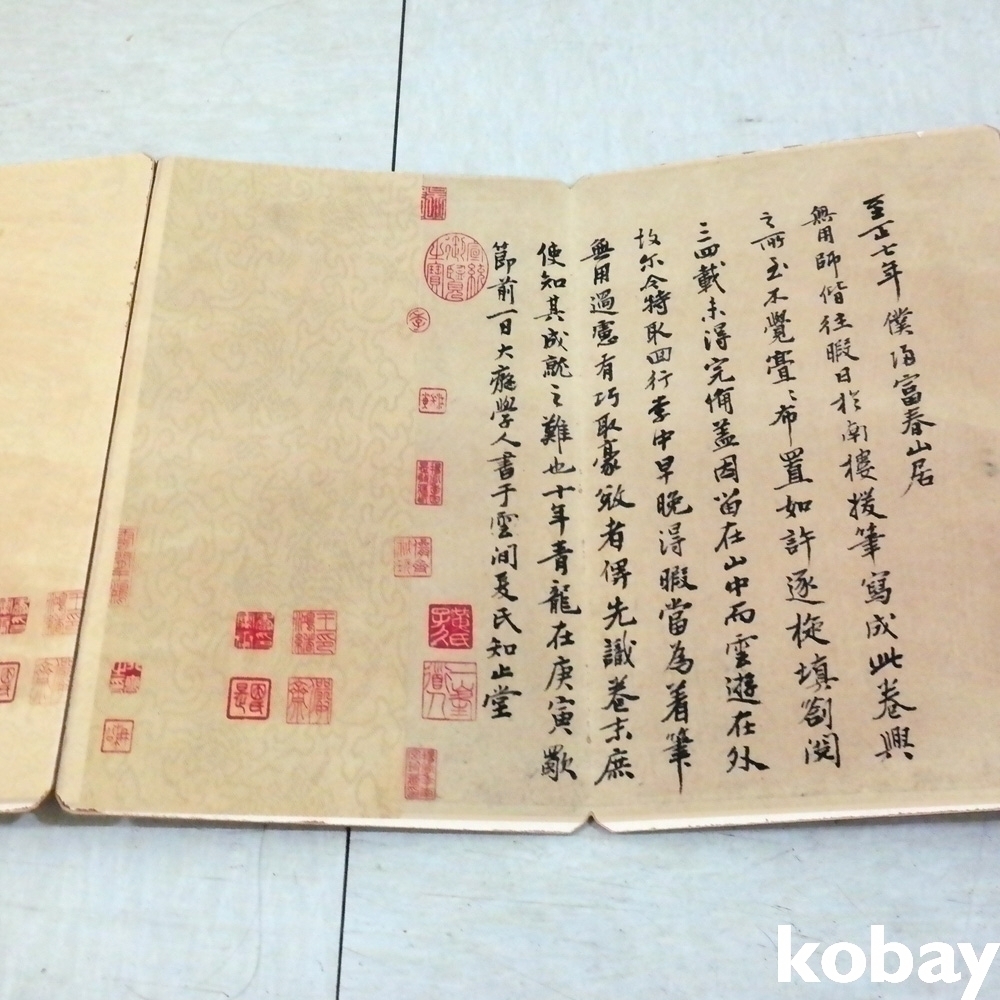 至正七年僕歸富春山居
無用師偕往暇日於南樓援筆寫成此卷興
之所至不覺亹〻布置如許逐旋填劄閱
三四載未得完備盖因留在山中而雲遊在外
故尔今特取回行李中早晚得暇當為着筆
無用過慮有巧取豪敚者俾先識卷末庶
使知其成就之難也十年青龍在庚寅歜
節前一日大癡學人書于雲間夏氏知止堂
宣統御覽之寶
kobay